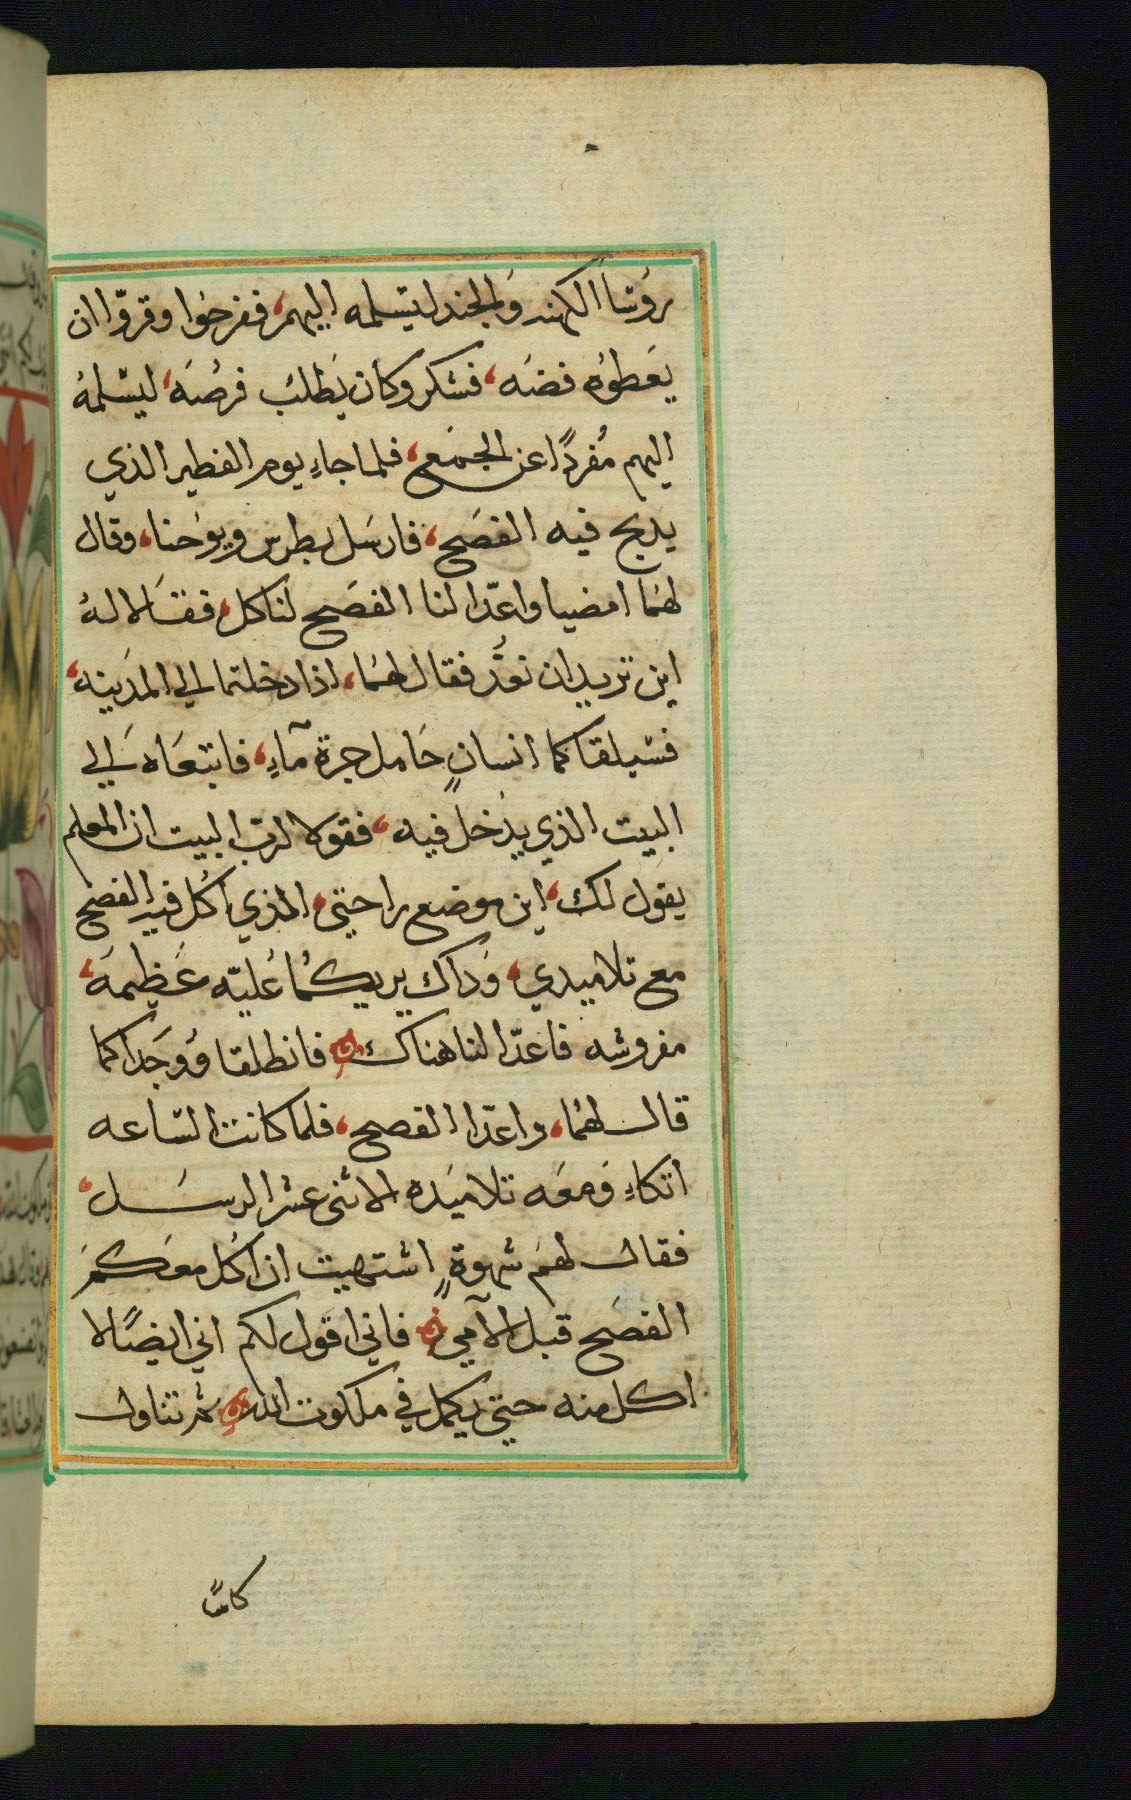 رؤسا الكهنه والجند ليسلمه اليهم، ففرحوا وقرّوا ان
يعطوه فضه، فشكر وكان يطلب فرصه، ليسلمهُ
اليهم مُفردًا عن الجمع، فلما جاءِ يوم الفطير الذي
يدبح فيه الفصح، فارسل بطرس ويوحنا، وقال
لهما امضيا واعدّا لنا الفصح لناكل، فقالا لهُ
اين تريد ان نعدُّ فقال لهما، اذا دخلتما الي المدينه،
فسيلقاكما انسانٍ حامل جرة مآءِ، فاتبعاه الي
البيت الذي يدخل فيه، فقولا لرب البيت ان المعلم
يقول لك، اين موضع راحتي، الذي اكل فيه الفصح
مع تلاميدي، وداك يريكما عُليّه عظيمه،
مفروشه فاعدّا لنا هناك فانطلقا ووجدا كما
قال لهما، واعدّا الفصح، فلما كانت الساعه
اتكاءِ ومعه تلاميده الاثنى عشر الرسل،
فقال لهم شهوةٍ اشتهيت ان اكل معكم
الفصح قبل الآمي فاني اقول لكم اني ايضًا لا
اكل منه حتي يكمل في ملكوت الله ثم تناول
كاسًا